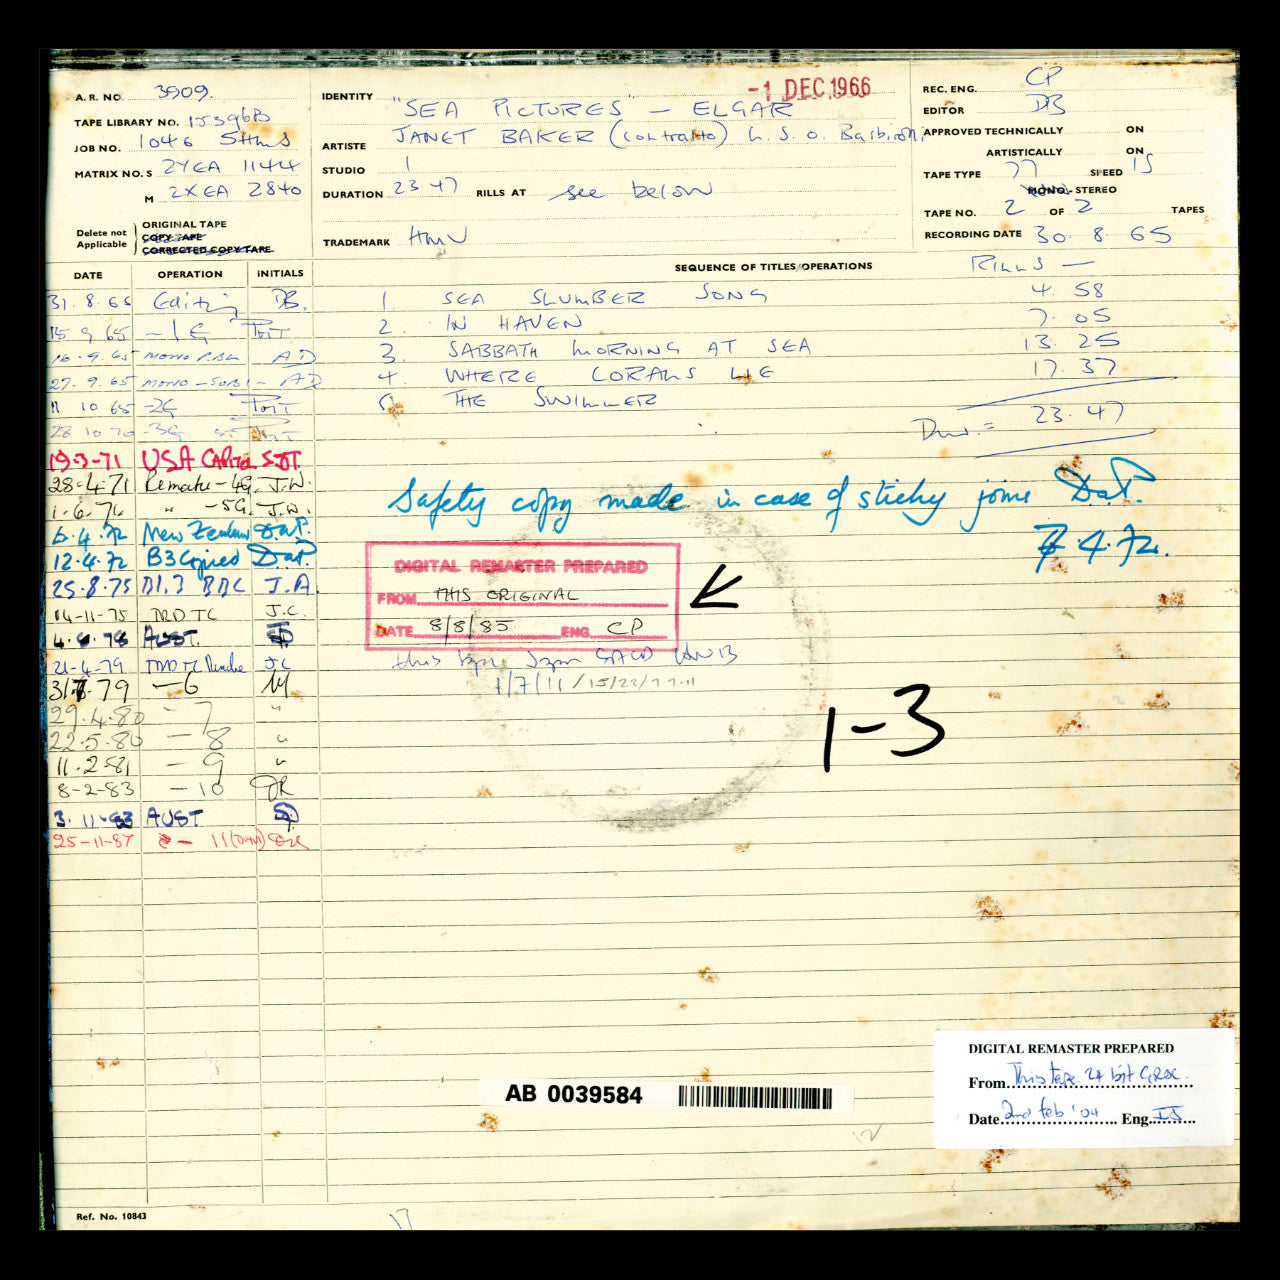 A. R. NO. 3909.
TAPE LIBRARY NO. 15396B
JOB NO. 1046 5HMS
MATRIX NO. S 2YEA 1144
M 2XEA 2840
Delete not Applicable
ORIGINAL TAPE
COPY TAPE
CORRECTED COPY TAPE
-1 DEC 1966
IDENTITY "SEA PICTURES" - ELGAR
ARTISTE JANET BAKER (contralto) L.S.O. Barbirolli
STUDIO 1
DURATION 23.47 RILLS AT see below
TRADEMARK HMV
REC. ENG. CP
EDITOR DB
APPROVED TECHNICALLY ON
ARTISTICALLY ON
TAPE TYPE 77 SPEED 15
MONO - STEREO
TAPE NO. 2 OF 2 TAPES
RECORDING DATE 30. 8. 65
DATE OPERATION INITIALS
SEQUENCE OF TITLES/OPERATIONS RILLS —
31. 8. 65 Editing DB.
15 9 65 -1G
16.9.65 MONO AD
27. 9. 65 MONO AD
11 10 65 -2G
28 10 70 -3G
19-3-71 USA Capitol
28-4-71 Remake -4G. J.W.
1. 6. 71 " -5G. J.W.
6.4.72 New Zealand D.a.P.
12.4.72 B3 Copied D.a.P.
25.8.75 J.A.
14-11-75 J.C.
AUST.
21-4-79 J.C.
79 -6
29.4.80 -7 "
22.5.80 -8 "
11.2.81 -9 "
8-2-83 -10
3. 11-83 AUST
25-11-87 - 11
1 SEA SLUMBER SONG 4. 58
2. IN HAVEN 7. 05
3. SABBATH MORNING AT SEA 13. 25
4. WHERE CORALS LIE 17. 37
5 THE SWIMMER
Dur. = 23. 47
Safety copy made in case of sticky joins D.a.P.
7 4.72.
DIGITAL REMASTER PREPARED
FROM THIS ORIGINAL
DATE 8/8/85 ENG. CP
this tape Japan SACD
1/7/11
1-3
AB 0039584
DIGITAL REMASTER PREPARED
From This tape. 24 bit
Date 2nd Feb '04 Eng. IJ
12
Ref. No. 10843
17